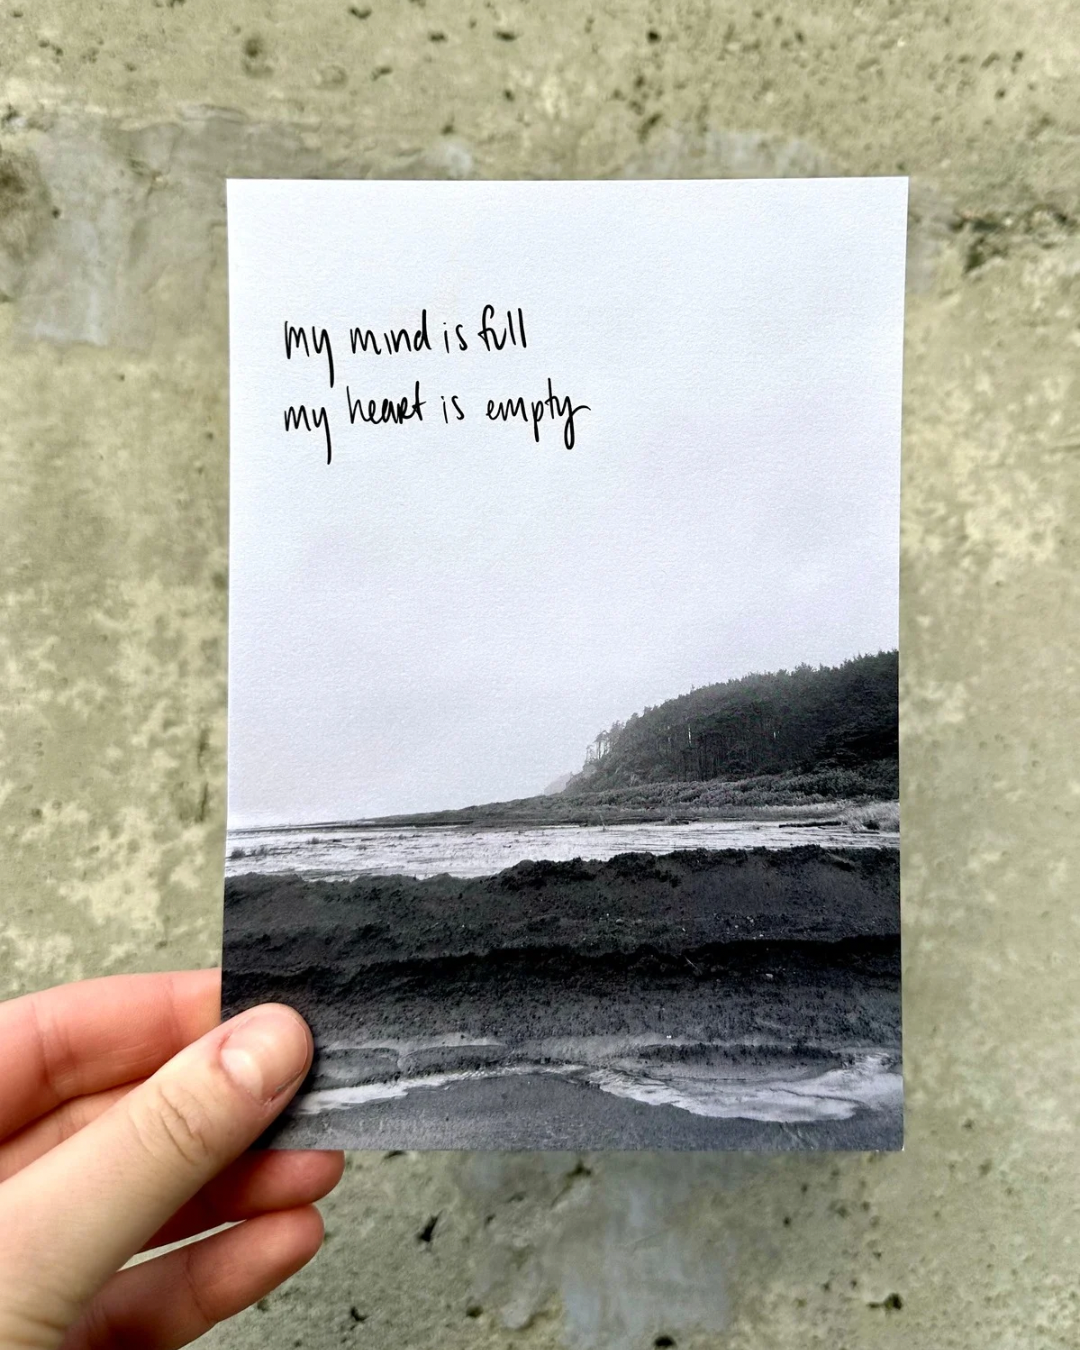 my mind is full
my heart is empty